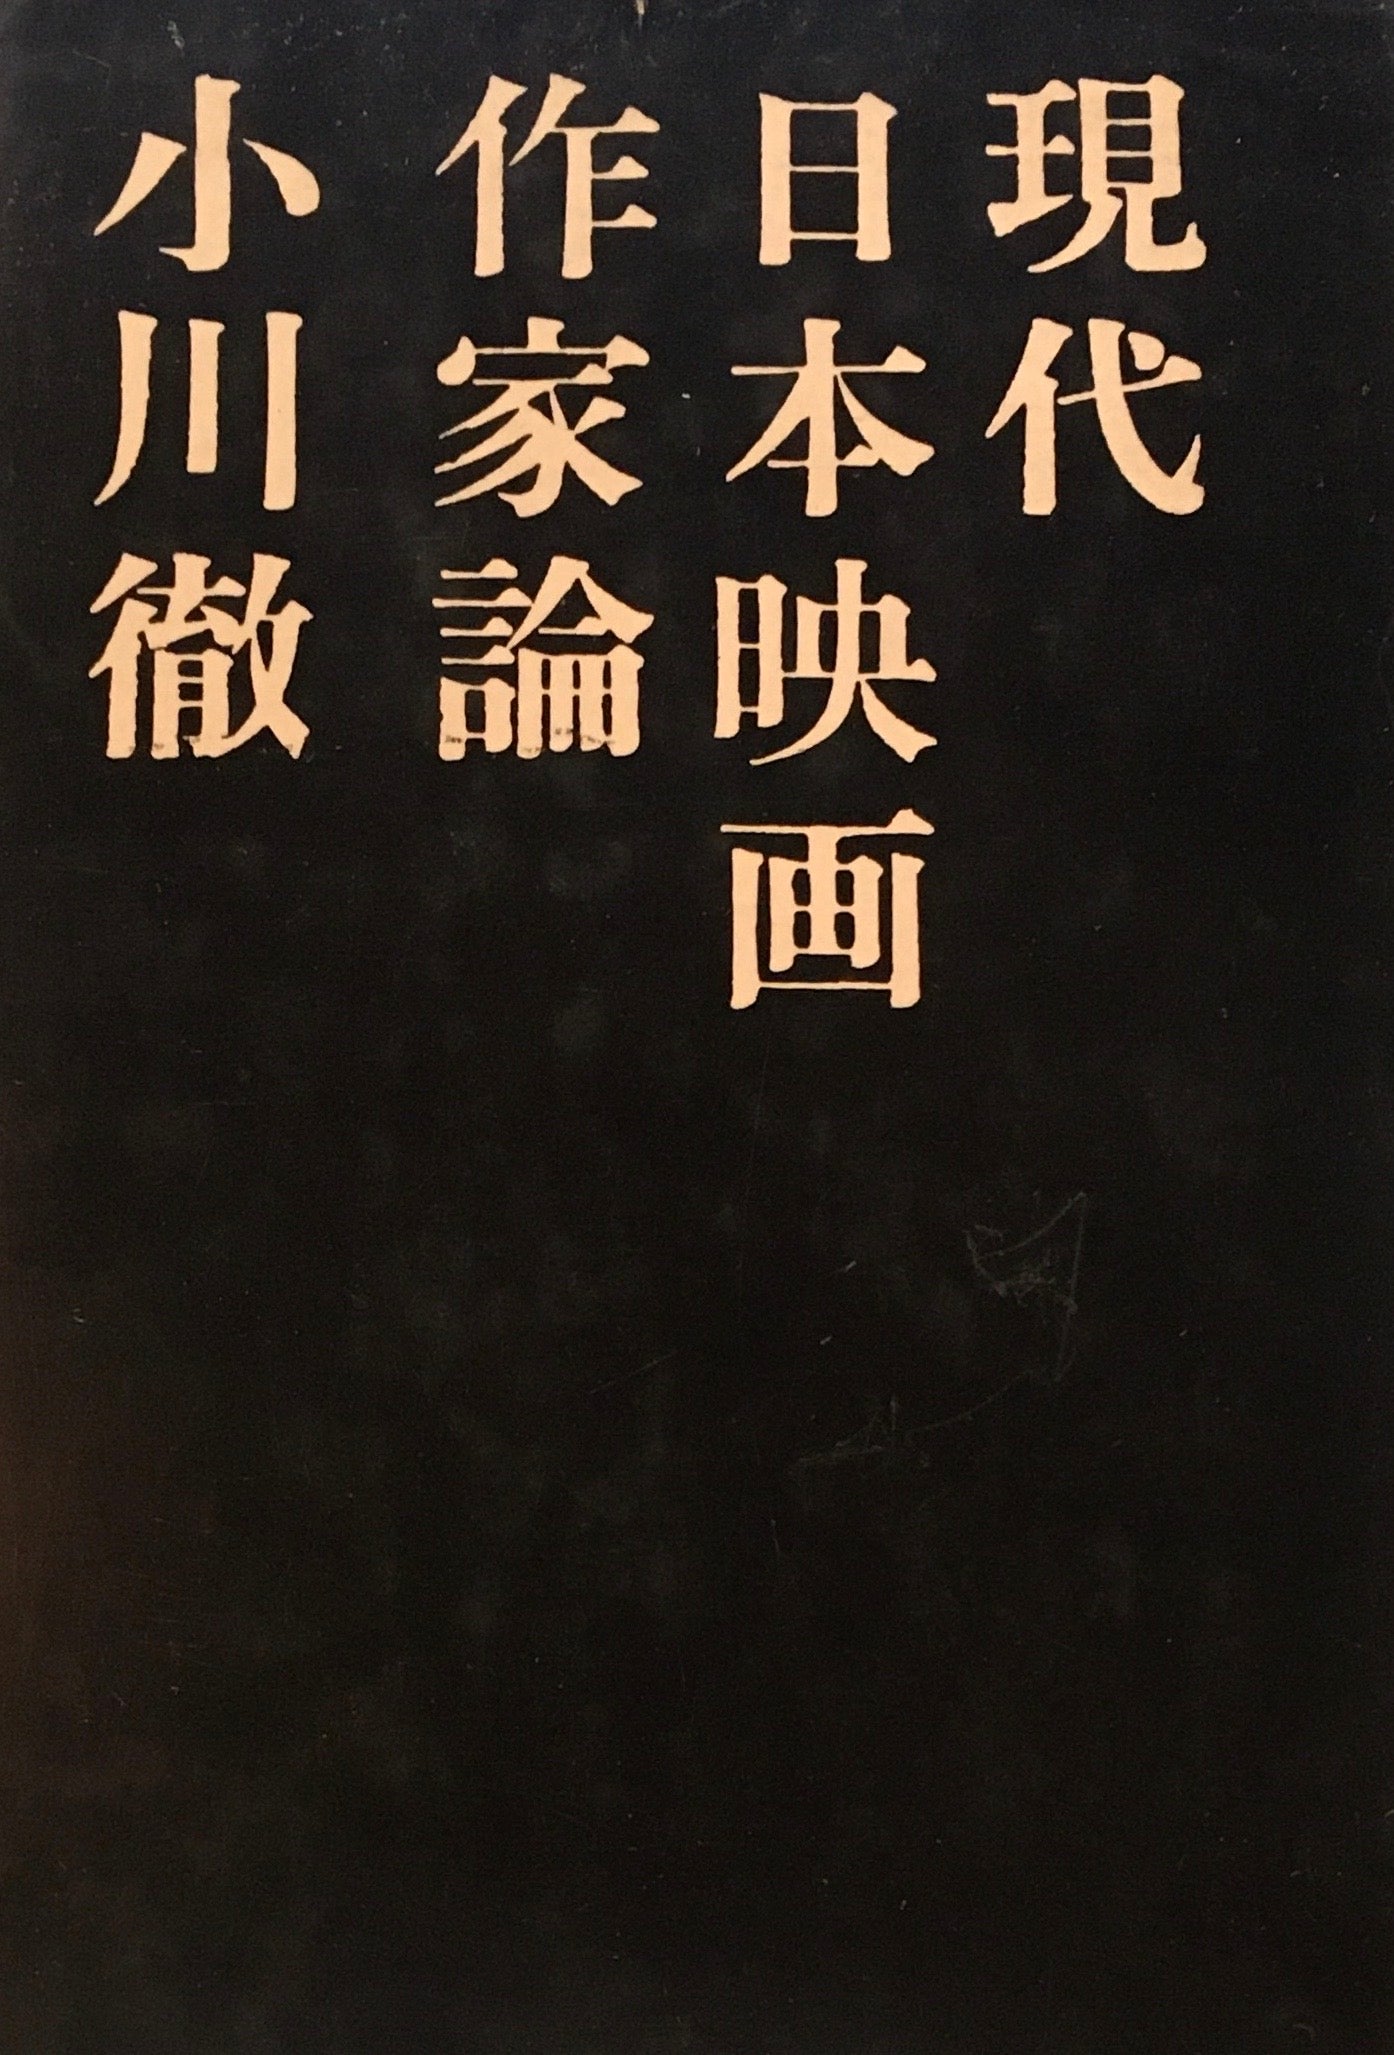 現代
日本映画
作家論
小川徹